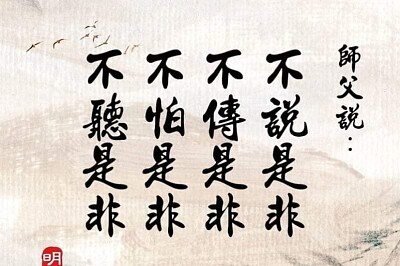 師父説：
不說是非
不傳是非
不怕是非
不聽是非
明